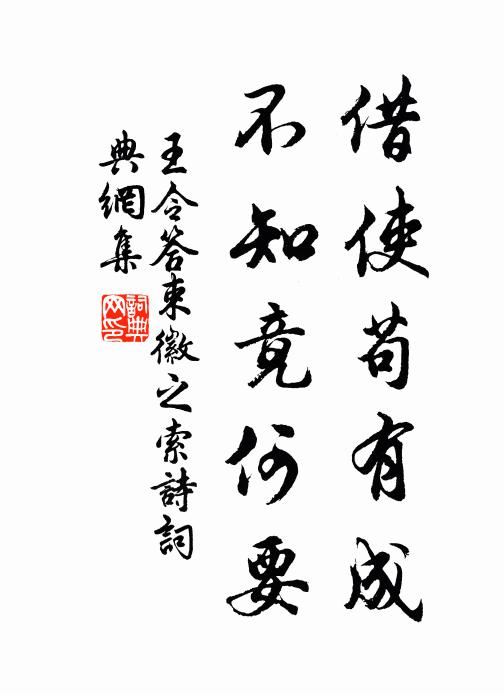 借使苟有成
不知竟何要
王令答束徽之索詩詞
典網集
詞典
网印